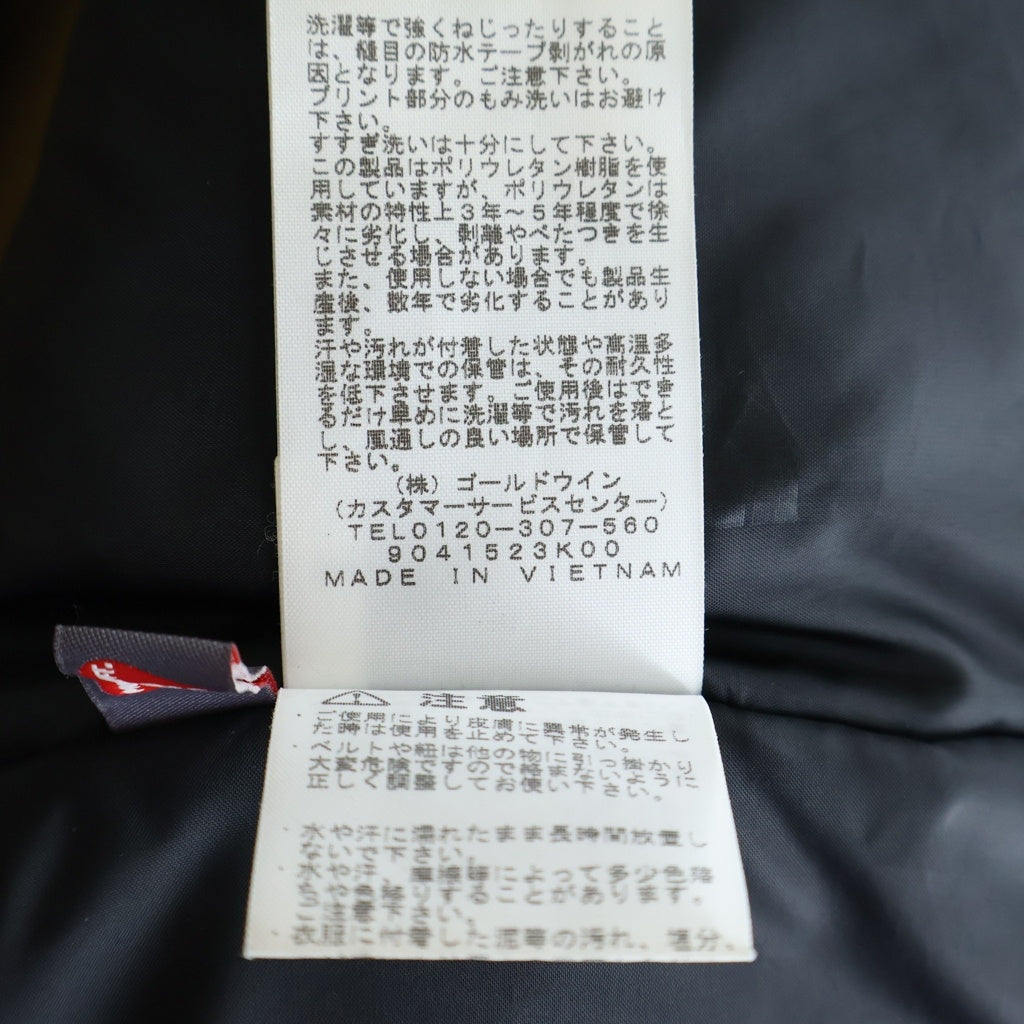 洗濯等で強くねじったりすること
は、縫目の防水テープ剥がれの原
因となります。ご注意下さい。
プリント部分のもみ洗いはお避け
下さい。
すすぎ洗いは十分にして下さい。
この製品はポリウレタン樹脂を使
用していますが、ポリウレタンは
素材の特性上3年～5年程度で徐
々に劣化し、剥離やべたつきを生
じさせる場合があります。
また、使用しない場合でも製品生
産後、数年で劣化することがあり
ます。
汗や汚れが付着した状態や高温多
湿な環境での保管は、その耐久性
を低下させます。ご使用後はでき
るだけ早めに洗濯等で汚れを落と
し、風通しの良い場所で保管して
下さい。
(株)ゴールドウイン
(カスタマーサービスセンター)
TEL0120-307-560
9041523K00
MADE IN VIETNAM
注意
ご使用により皮膚に異常が発生し
た時は使用を止めて下さい。
・ベルトや紐は他の物に引っ掛かり
大変危険ですので絡まないように
正しく調整してお使い下さい。
・水や汗に濡れたまま長時間放置し
ないで下さい。
・水や汗、摩擦等によって多少色落
ちや色移りすることがあります。
ご注意下さい。
・衣服に付着した泥等の汚れ、塩分、